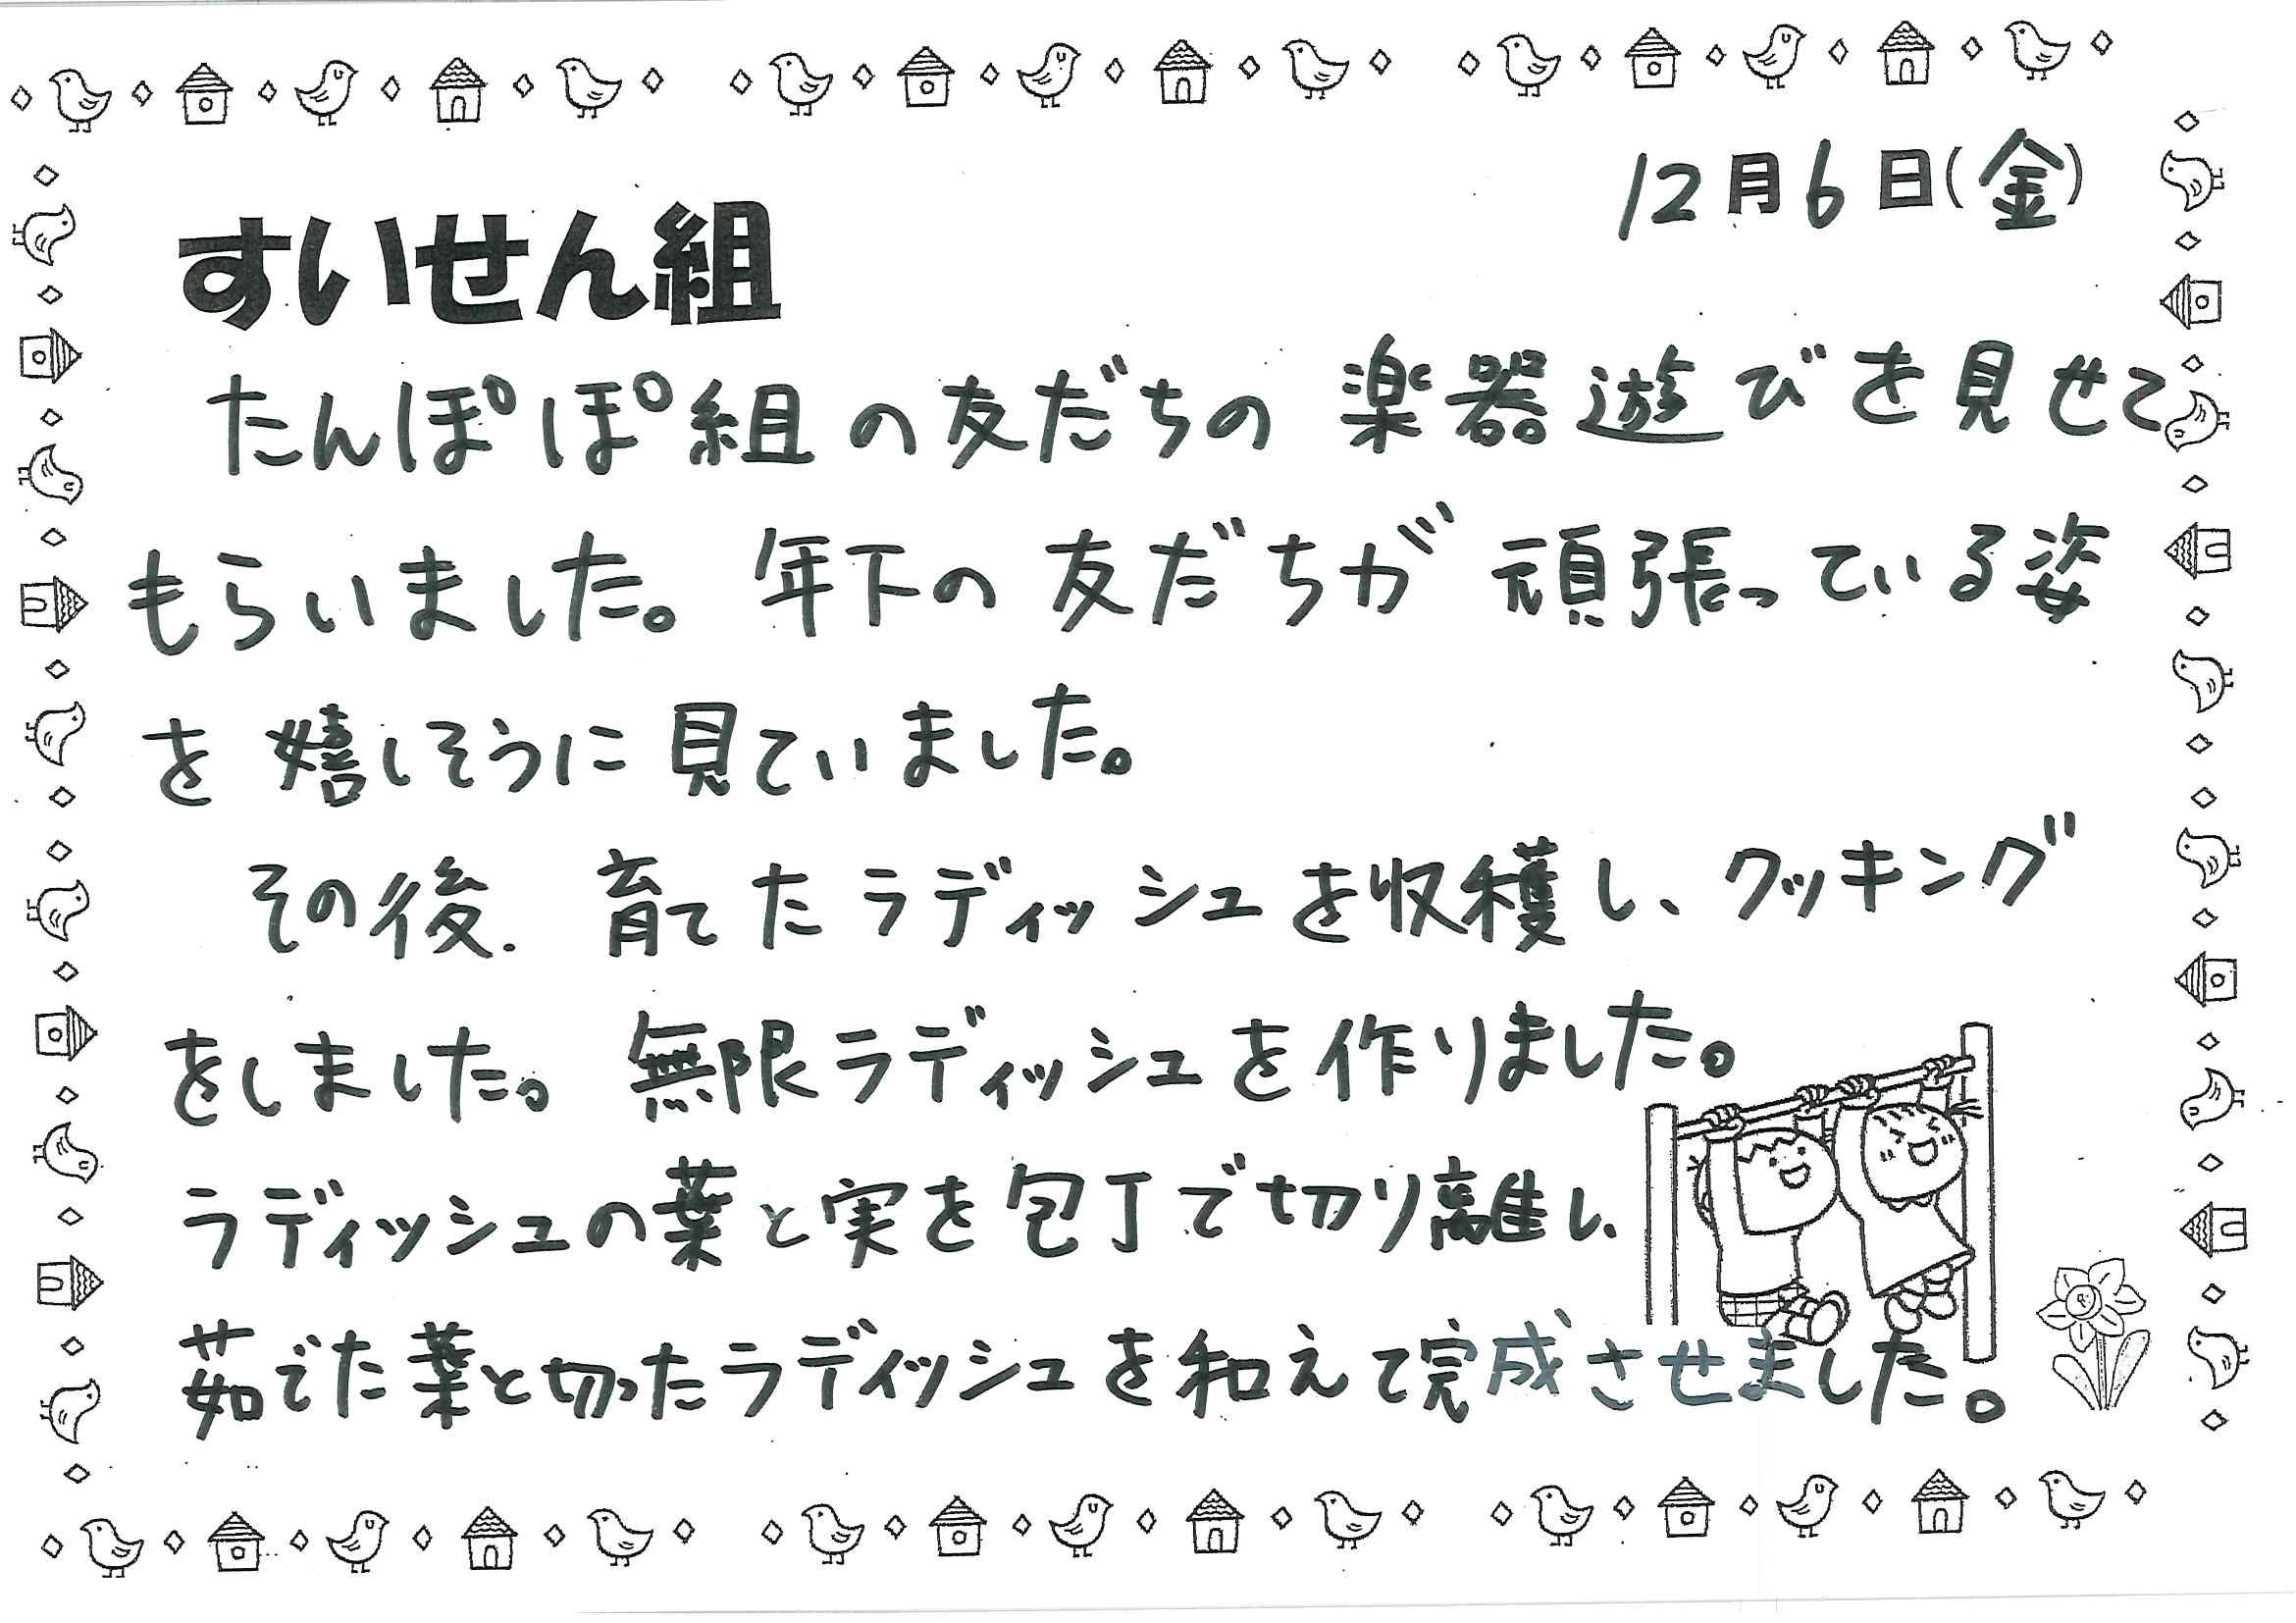 12月6日(金)
すいせん組
たんぽぽ組の友だちの楽器遊びを見せて
もらいました。年下の友だちが頑張っている姿
を嬉しそうに見ていました。
その後、育てたラディッシュを収穫し、クッキング
をしました。無限ラディッシュを作りました。
ラディッシュの葉と実を包丁で切り離し、
茹でた葉と切ったラディッシュを和えて完成させました。